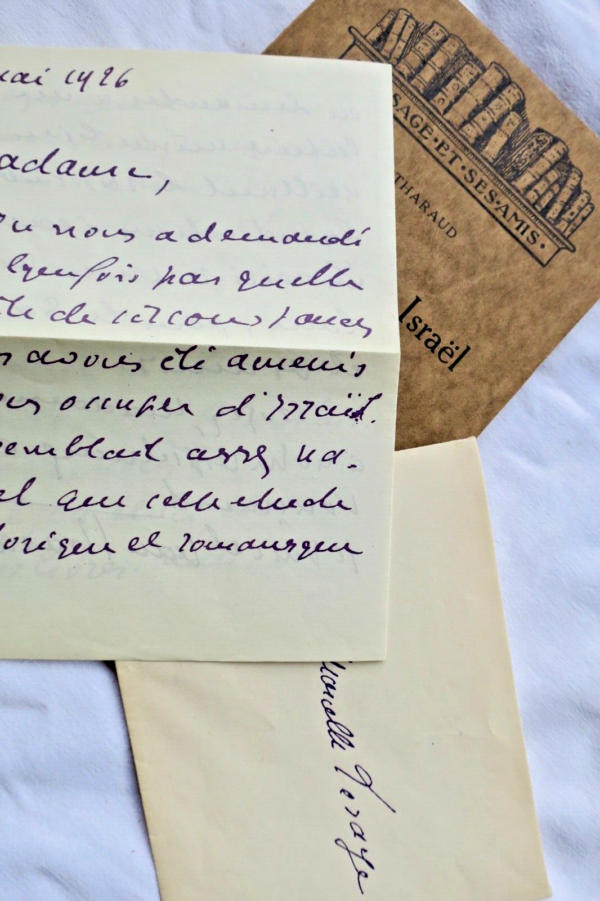 mai 1926
adame,
On nous a demandé
quelquefois par quelle
ite de circonstances
s avons été amenés
us occuper d'Israël.
semblait assez na-
el que cette étude
torique et romanesque
SAGE·ET·SES·AMIS·
THARAUD
Israël
Marcelle Tinayre